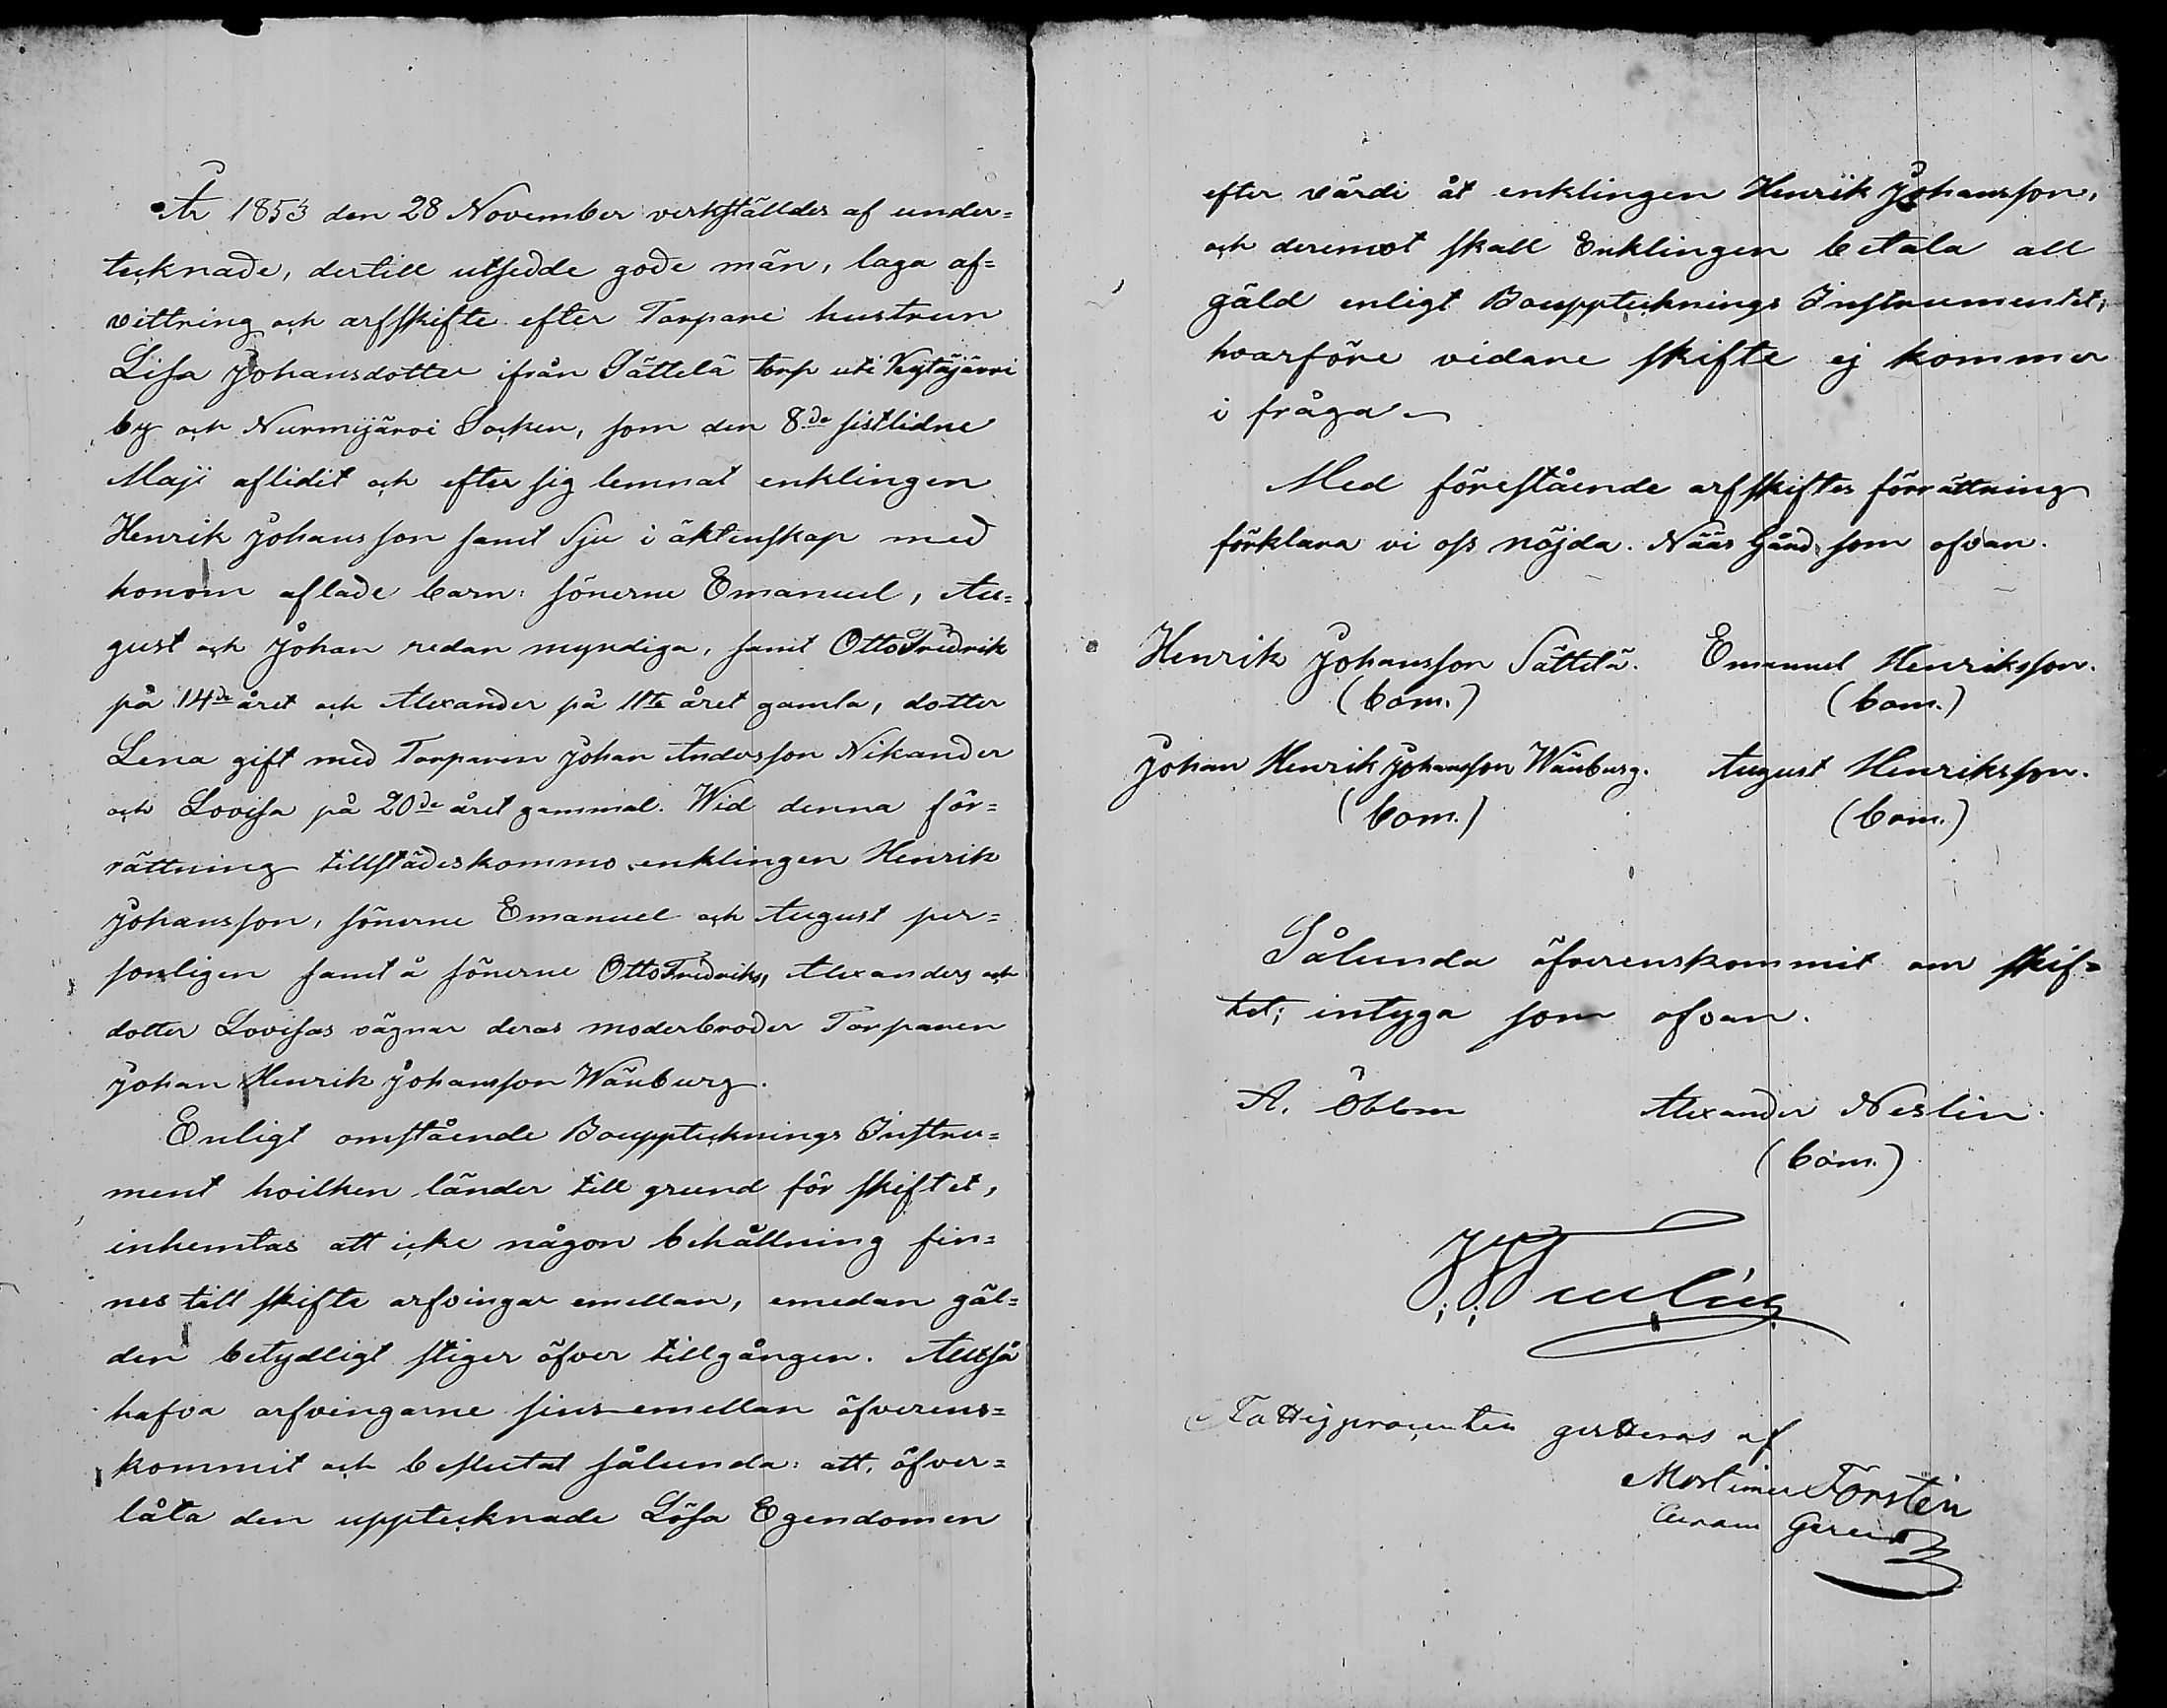 År 1853 den 28 November verkställdes af under=
tecknade, dertill utsedde gode män, laga af=
vittring och arfskifte efter Torpare hustrun
Lisa Johansdotter ifrån Sättelä torp uti Vegtäjärvi
by och Nurmijärvi Socken, som den 8de sistlidne
Maji aflidit och efter sig lemnat enklingen
Henrik Johansson samt Sju i äktenskap med
honom aflade barn: sönerne Emanuel, Au=
gust och Johan redan myndiga, samt Otto Fredrik
på 14de året och Alexander på 11te året gamla, dotter
Lena gift med Torparen Johan Andersson Nikander
och Lovisa på 20de året gammal. Wid denna för=
rättning tillstädeskommo enklingen Henrik
Johansson, sönerne Emanuel och August per=
sonligen samt å sönerne Otto Fredriks, Alexanders och
dotter Lovisas vägnar deras moderbroder Torparen
Johan Henrik Johansson Wänburg.
Enligt omstående Boupptecknings Instru=
ment hvilken länder till grund för skiftet,
inhemtas att icke någon behållning fin=
nes till skifte arfvingar emellan, emedan gäl=
den betydligt stiger öfver tillgången. Alltså
hafva arfvingarne sins emellan öfverens=
kommit och beslutat sålunda: att öfver=
låta den upptecknade Lösa Egendomen
efter värdi åt enklingen Henrik Johansson,
och deremot skall Enklingen betala all
gäld enligt Boupptecknings Instrumentet;
hvarföre vidare skifte ej kommer
i fråga.
Med förestående arfskiftes förrättning
förklara vi oss nöjda. Nääs Gård som ofvan.
Henrik Johansson Sättelä. Emanuel Henriksson.
(bom.) (bom.)
Johan Henrik Johansson Wänburg. August Henriksson.
(bom.) (bom.)
Sålunda öfverenskommit om skif=
tet; intyga som ofvan.
A. Öblom Alexander Neslin.
(bom.)
Fattigprocenten qvitteras af
Mortimer Forstén